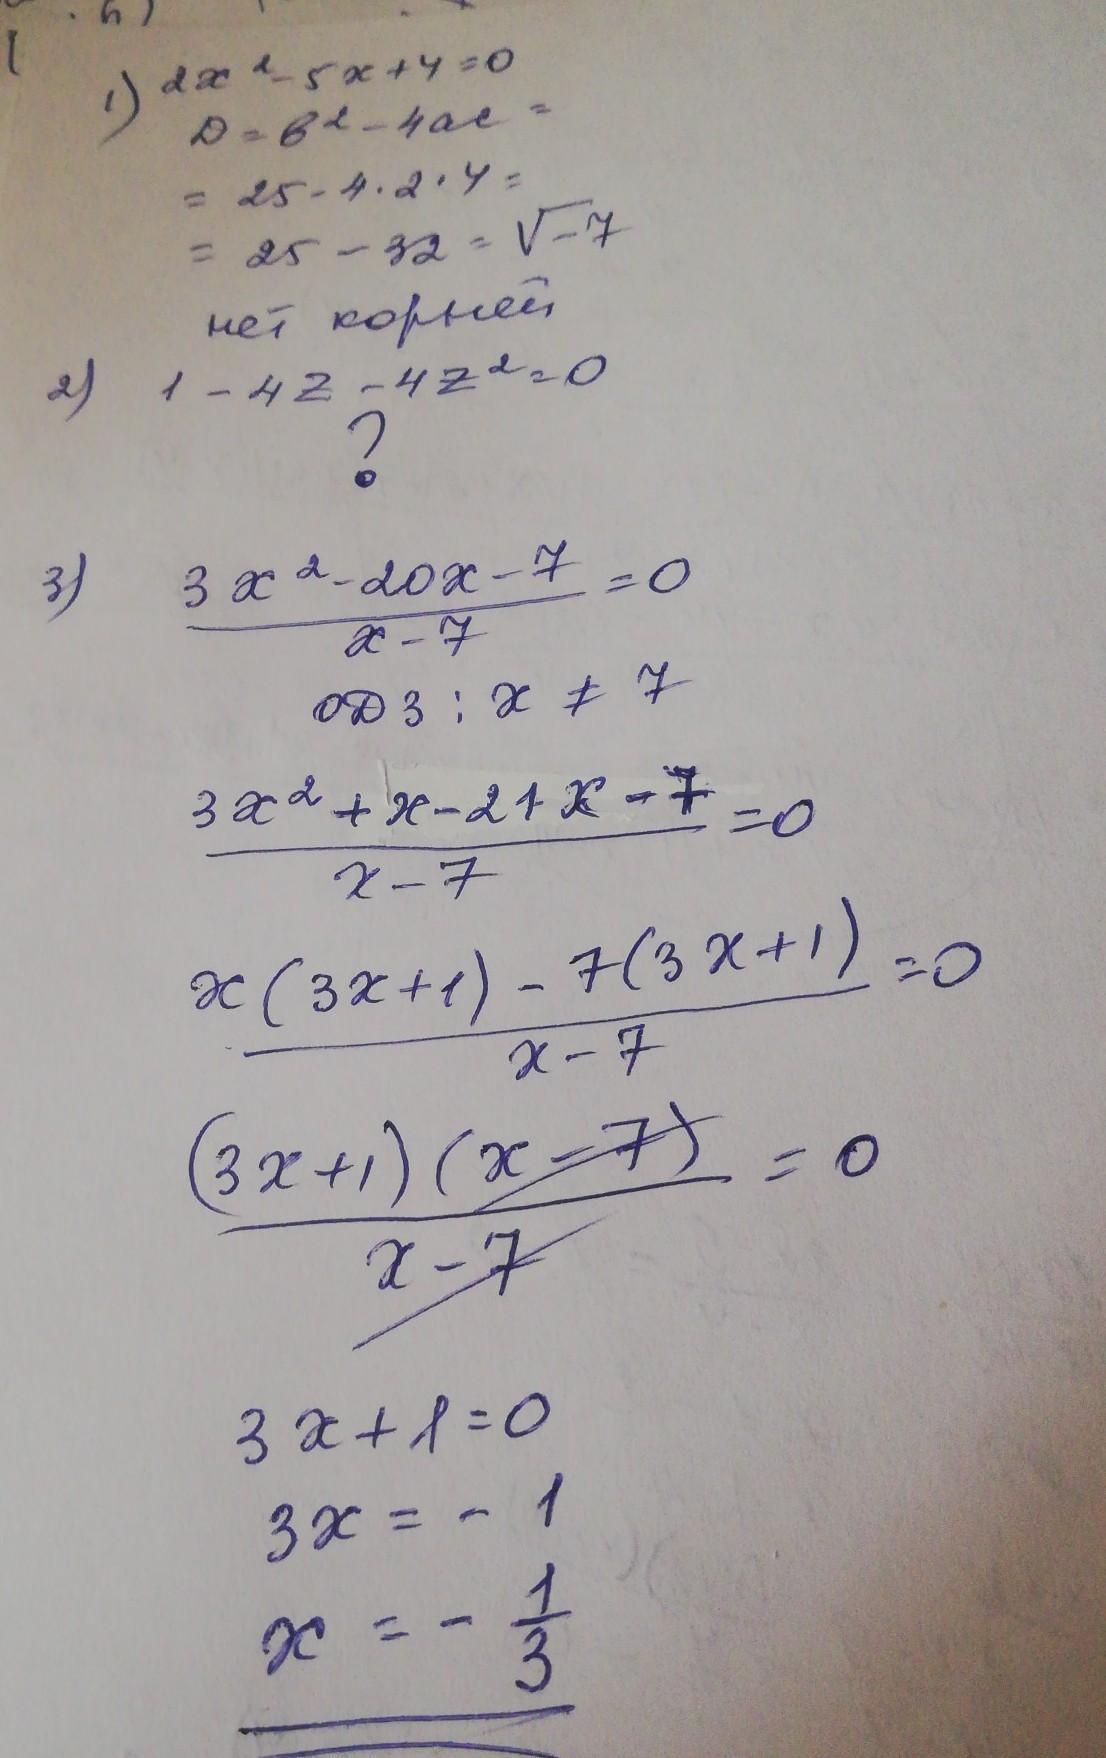 1) 2x² - 5x + 4 = 0
D = b² - 4ac =
= 25 - 4 · 2 · 4 =
= 25 - 32 = √-7
нет корней
2) 1 - 4z - 4z² = 0
?
3) 3x² - 20x - 7 = 0
x - 7
ОДЗ : x ≠ 7
3x² + x - 21x - 7 = 0
x - 7
x(3x+1) - 7(3x+1) = 0
x - 7
(3x+1)(x-7) = 0
x - 7
3x + 1 = 0
3x = - 1
x = - 1/3